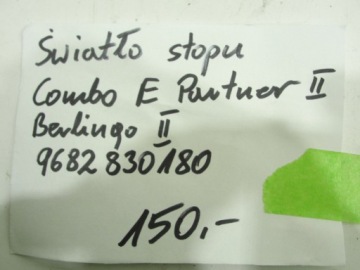 Światło stopu
Combo E Partner II
Berlingo II
9682830180
150,-